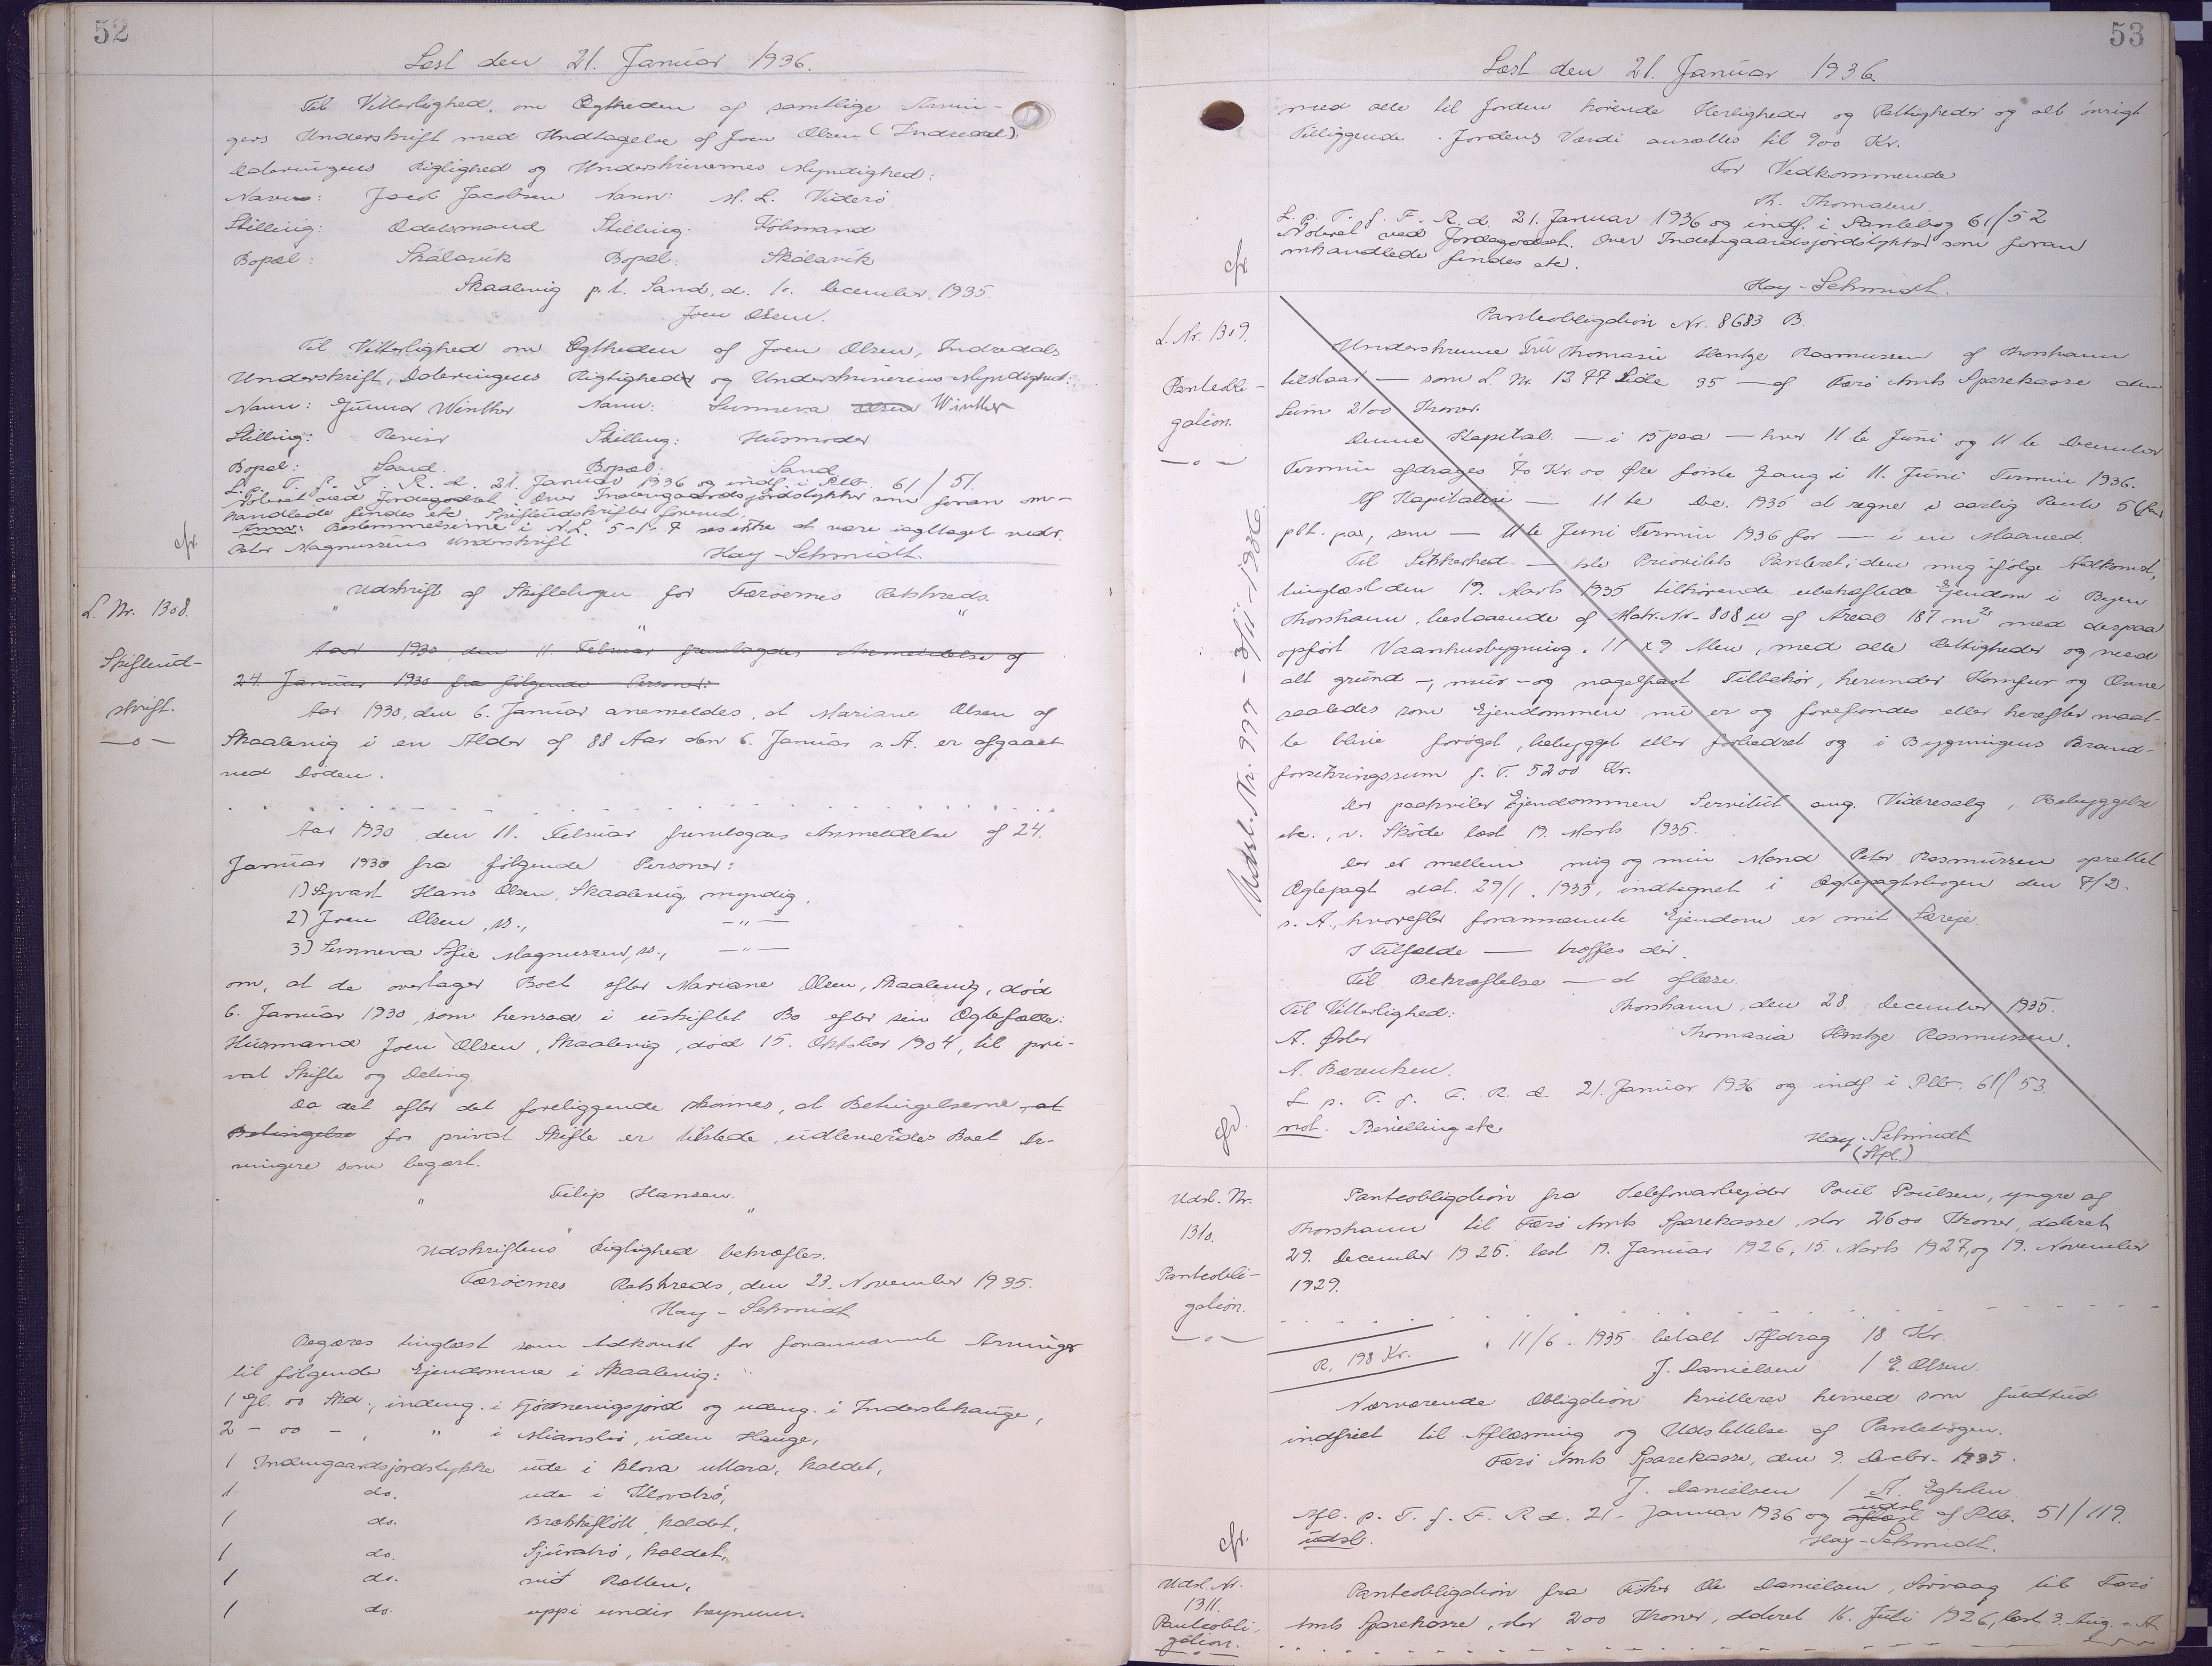 52
Læst den 21. Januar 1936.
Til Vitterlighed om Ægtheden af samtlige Arvin-
gers Underskrift med Undtagelse af Joen Olsen (Indredal)
Dateringens Rigtighed og Underskrivernes Myndighed:
Navn: Jacob Jacobsen Navn: M. L. Viderö
Stilling: Odelsmand Stilling: Købmand
Bopæl: Skálavík Bopæl: Skálavík
Skaalevig p.t. Sand, d. 10. December 1935
Joen Olsen.
Til Vitterlighed om Ægtheden af Joen Olsen, Indredals
Underskrift, Dateringens Rigtighed og Underskriverens Myndighed:
Navn: Gunnar Winther Navn: Sunneva Olsen Winther
Stilling: Revisor Stilling: Husmoder
Bopæl: Sand. Bopæl: Sand
L. p. T. f. F. R. d. 21. Januar 1936 og indf. i Plb. 61/51.
Noteret ved Jordegodset. Over Indengaardsjordstykker som foran om-
handlede findes etc. Skifteudskrifter forevist.
Anm: Bestemmelserne i N.L. 5-1-7 ses ikke at være iagttaget vedr.
Peter Magnussens Underskrift
cfr. Hay-Schmidt.
L. Nr. 1308.
Skifteud-
skrift.
—o—
" Udskrift af Skiftebogen for Færøernes Retskreds. "
"
Aar 1930, den 11. Februar fremlagdes Anmeldelse af
24. Januar 1930 fra følgende Personer:
Aar 1930, den 6. Januar anmeldes, at Mariane Olsen af
Skaalevig i en Alder af 88 Aar den 6. Januar s. A. er afgaaet
ved Døden.
Aar 1930 den 11. Februar fremlagdes Anmeldelse af 24.
Januar 1930 fra følgende Personer:
1) Syvart Hans Olsen, Skaalevig myndig.
2) Joen Olsen, ss., —"—
3) Sunneva Sofie Magnussen, ss., —"—
om, at de overtager Boet efter Mariane Olsen, Skaalevig, død
6. Januar 1930, som hensad i uskiftet Bo efter sin Ægtefælle:
Husmand Joen Olsen, Skaalevig, død 15. Oktober 1904, til pri-
vat Skifte og Deling.
Da det efter det foreliggende skønnes, at Betingelserne at
Betingelse for privat Skifte er tilstede, udleveredes Boet Ar-
vingere som begært.
" Filip Hansen. "
"
Udskriftens Rigtighed bekræftes.
Færøernes Retskreds, den 23. November 1935.
Hay-Schmidt
Begæres tinglæst som Adkomst for forannævnte Arvinger
til følgende Ejendomme i Skaalevig:
1 Gl. 00 Skd., indeng. i Fjørnenigsjord og udeng. i Innerstehauge,
2 - 00 - , " i Mianstø, uden Hauge,
1 Indengaardsjordstykke ude i Klova uttara, kaldet,
1 do. ude i Klovdrö,
1 do. Brekkeflött kaldet,
1 do. Sjúrströ, kaldet,
1 do. við Rallen,
1 do. uppi undir hoynum.
53
Læst den 21. Januar 1936.
med alle til Jorden hørende Herligheder og Rettigheder og alt øvrigt
Tilliggende. Jordens Værdi ansættes til 900 Kr.
For Vedkommende
Th. Thomasen.
L. p. T. f. F. R. d. 21. Januar 1936 og indf. i Pantebog 61/52
Noteret ved Jordegodset. Over Indengaardsjordstykker som foran
omhandlede findes etc.
cfr. Hay-Schmidt.
L. Nr. 1309.
Panteobli-
gation.
—o—
Udsl. Nr. 999 - 3/11-1936.
Panteobligation Nr. 8683 B.
Underskrevne Frú Thomasia Hentze Rasmussen af Thorshavn
tilstaar — som L. Nr. 1277 Side 35 — af Færø Amts Sparekasse den
Sum 2100 Kroner.
Denne Kapital — i 15 paa — hver 11te Juni og 11te December
Termin afdrages 70 Kr. 00 Øre første Gang i 11. Juni Termin 1936.
Af Kapitalen — 11te Dec. 1935 at regne i aarlig Rente 5 (fem
pCt. paa, som — 11te Juni Termin 1936 for — i en Maaned.
Til Sikkerhed — 1ste Prioritets Panteret i den mig ifølge Adkomst,
tinglæst den 19. Marts 1935 tilhørende ubehæftede Ejendom i Byen
Thorshavn, bestaaende af Matr. Nr. 808 m af Areal 187 m² med despaa
opført Vaanhusbygning. 11 x 9 Alen, med alle Rettigheder og med
alt grund-, mur- og nagelfast Tilbehør, herunder Komfur og Ovne
saaledes som Ejendommen nú er og forefindes eller herefter maat-
te blive forøget, bebygget eller forbedret og i Bygningens Brand-
forsikringssum f. T. 5200 Kr.
Der paahviler Ejendommen Servitut ang. Videresalg, Bebyggelse
etc., v. Skøde læst 19. Marts 1935.
Der er mellem mig og min Mand Peter Rasmussen oprettet
Ægtepagt dat. 29/1. 1935, indtegnet i Ægtepagtsbogen den 7/2.
s. A., hvorefter forannævnte Ejendom er mit Særeje.
I Tilfælde — træffes dér.
Til Bekræftelse — at aflæse.
Til Vitterlighed: Thorshavn, den 28. December 1935.
A. Øster Thomasia Hentze Rasmussen.
N. Bærentsen.
L. p. T. f. F. R. d. 21. Januar 1936 og indf. i Plb. 61/53.
not. Bevilling etc.
cfr. Hay-Schmidt
(Stpl.)
Udsl. Nr.
1310.
Panteobli-
gation.
—o—
Panteobligation fra Telefonarbejder Poul Poulsen, yngre af
Thorshavn til Færø Amts Sparekasse, stor 2600 Kroner, dateret
29. December 1925. læst 19. Januar 1926, 15. Marts 1927, og 19. November
1929.
R. 198 Kr. 11/6. 1935 betalt Afdrag 18 Kr.
J. Danielsen / E. Olsen.
Nærværende Obligation kvitteres herved som fuldtud
indfriet til Aflæsning og Udslettelse af Pantebogen.
Færø Amts Sparekasse, den 9. Decbr. 1935.
J. Danielsen / A. Egholm
Afl. p. T. f. F. R. d. 21. Januar 1936 og aflæst udsl. af Plb. 51/119.
udsl.
cfr. Hay-Schmidt.
Udsl. Nr.
1311.
Panteobli-
gation.
Panteobligation fra Fisker Ole Danielsen, Sørvaag til Færø
Amts Sparekasse, stor 200 Kroner, dateret 16. Juli 1926, læst 3. Aug. s. A.